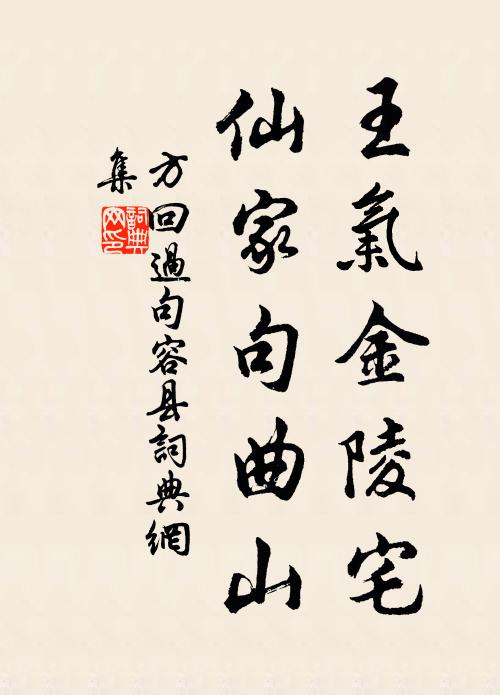 王氣金陵宅
仙家句曲山
方回過句容县詞典網
集
詞典
网印